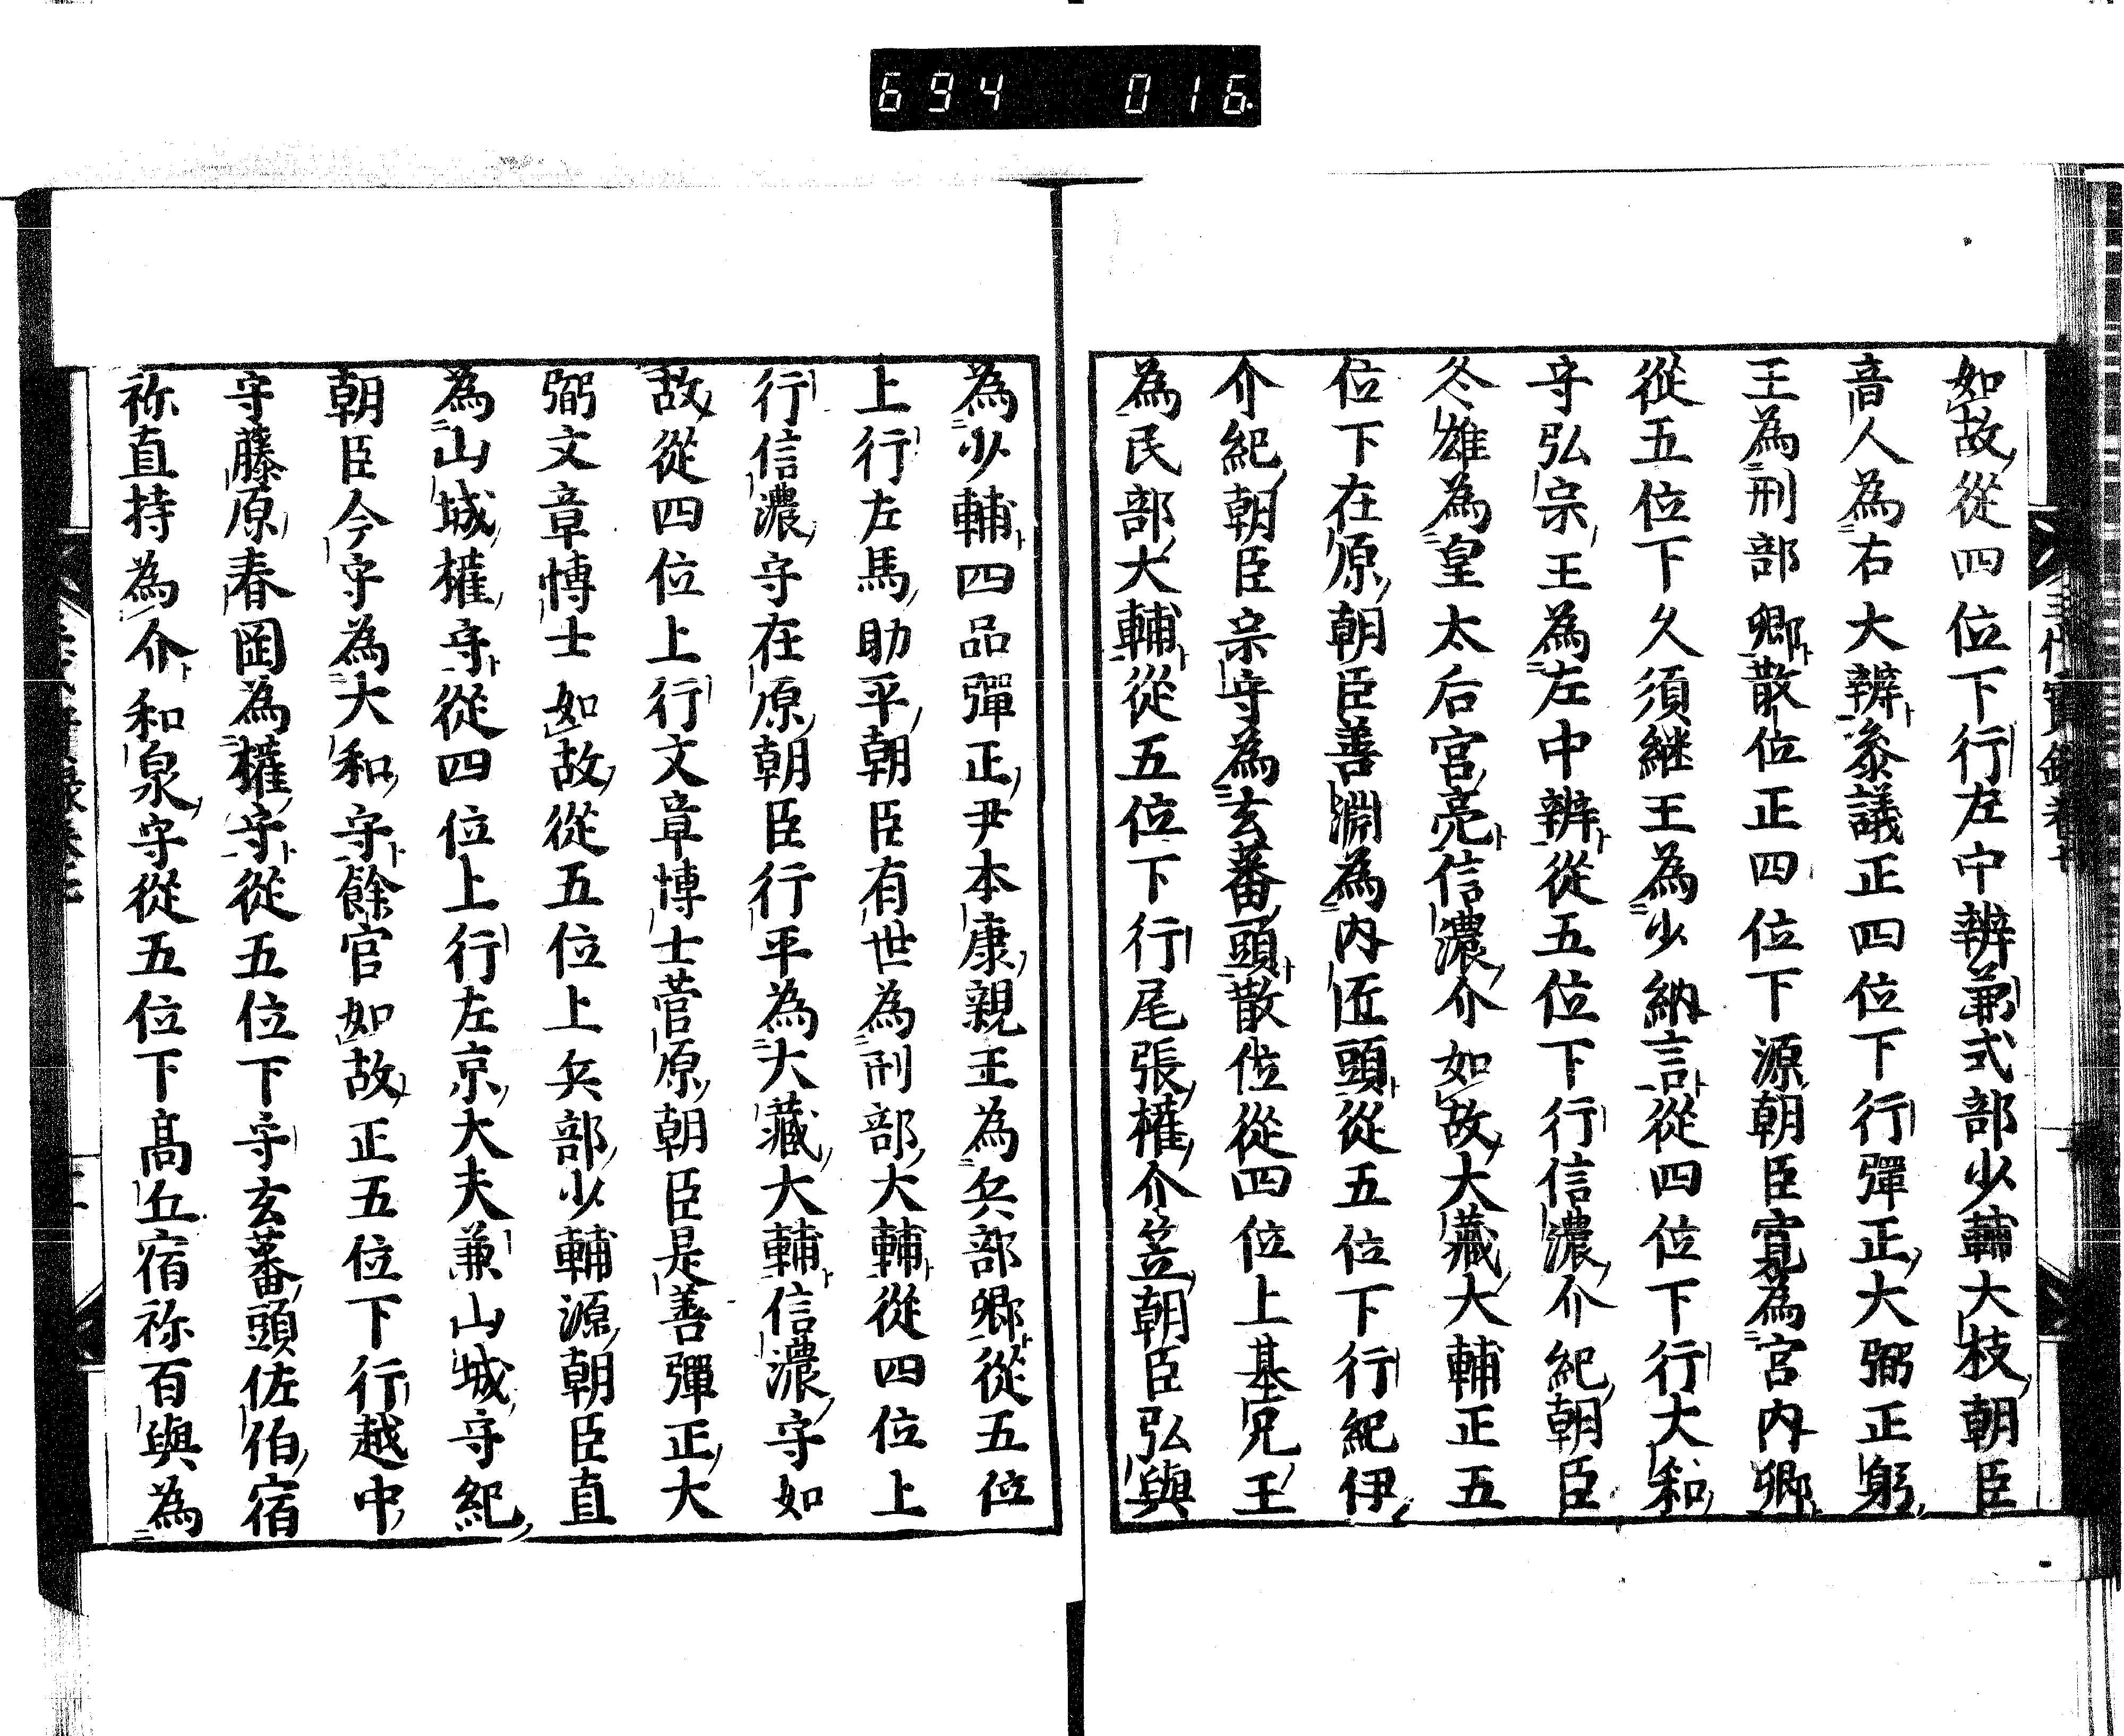 694 016
如故從四位下行左中辨兼式部少輔大枝朝臣
音人為右大辨參議正四位下行彈正大弼正躬
王為刑部卿散位正四位下源朝臣寬為宮内卿
從五位下久須継王為少納言從四位下行大和
守弘宗王為左中辨從五位下行信濃介紀朝臣
冬雄為皇太后宮亮信濃介如故大藏大輔正五
位下在原朝臣善淵為内匠頭從五位下行紀伊
介紀朝臣宗守為玄蕃頭散位從四位上基兄王
為民部大輔從五位下行尾張權介笠朝臣弘與
為少輔四品彈正尹本康親王為兵部卿從五位
上行左馬助平朝臣有世為刑部大輔從四位上
行信濃守在原朝臣行平為大藏大輔信濃守如
故從四位上行文章博士菅原朝臣是善彈正大
弼文章博士如故從五位上兵部少輔源朝臣直
為山城權守從四位上行左京大夫兼山城守紀
朝臣今守為大和守餘官如故正五位下行越中
守藤原春岡為權守從五位下守玄蕃頭佐伯宿
祢直持為介和泉守從五位下髙丘宿祢百興為